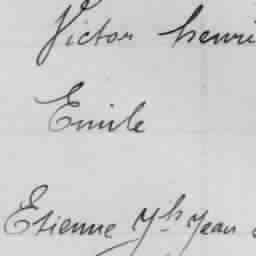 Victor henri
Emile
Etienne Jh Jean